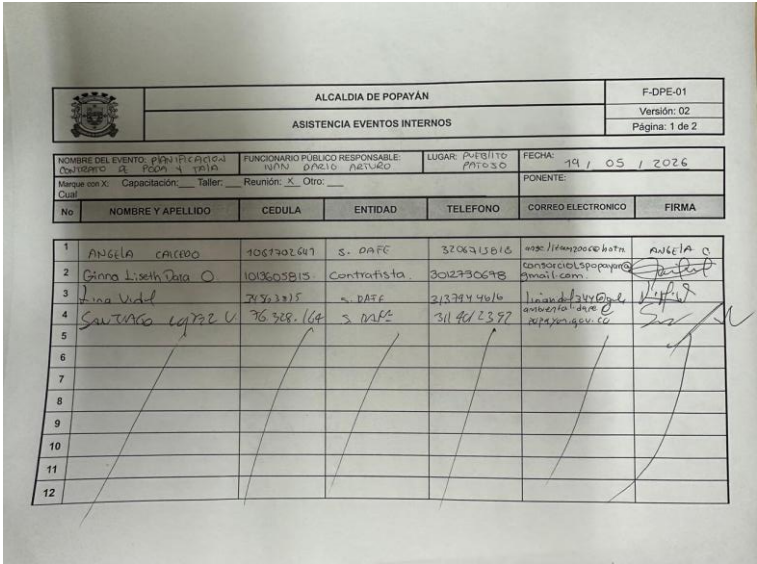 ALCALDIA DE POPAYÁN
ASISTENCIA EVENTOS INTERNOS
F-DPE-01
Versión: 02
Página: 1 de 2
NOMBRE DEL EVENTO: PlANIFICACION
CONTRATO DE PODA Y TALA
FUNCIONARIO PÚBLICO RESPONSABLE:
IVAN DARIO ARTURO
LUGAR: PUEBLITO
PATOJO
FECHA: 19 / 05 / 2026
Marque con X: Capacitación:___ Taller: ___ Reunión: X Otro: ___
Cual
PONENTE:
No NOMBRE Y APELLIDO CEDULA ENTIDAD TELEFONO CORREO ELECTRONICO FIRMA
1 ANGELA CAICEDO 1061702647 S. DAFE 3206715818 ANGELA C.
2 Ginna Liseth Daza O. 1013605815. Contratista. 3012730698 consorciolspopayan@
gmail.com.
3 Lina Vidal S. DAFE
4 SANTIAGO LOPEZ V. 76.328.164 S. DAFE 311 4012397 ambiental.dafe@
popayan.gov.co
5
6
7
8
9
10
11
12